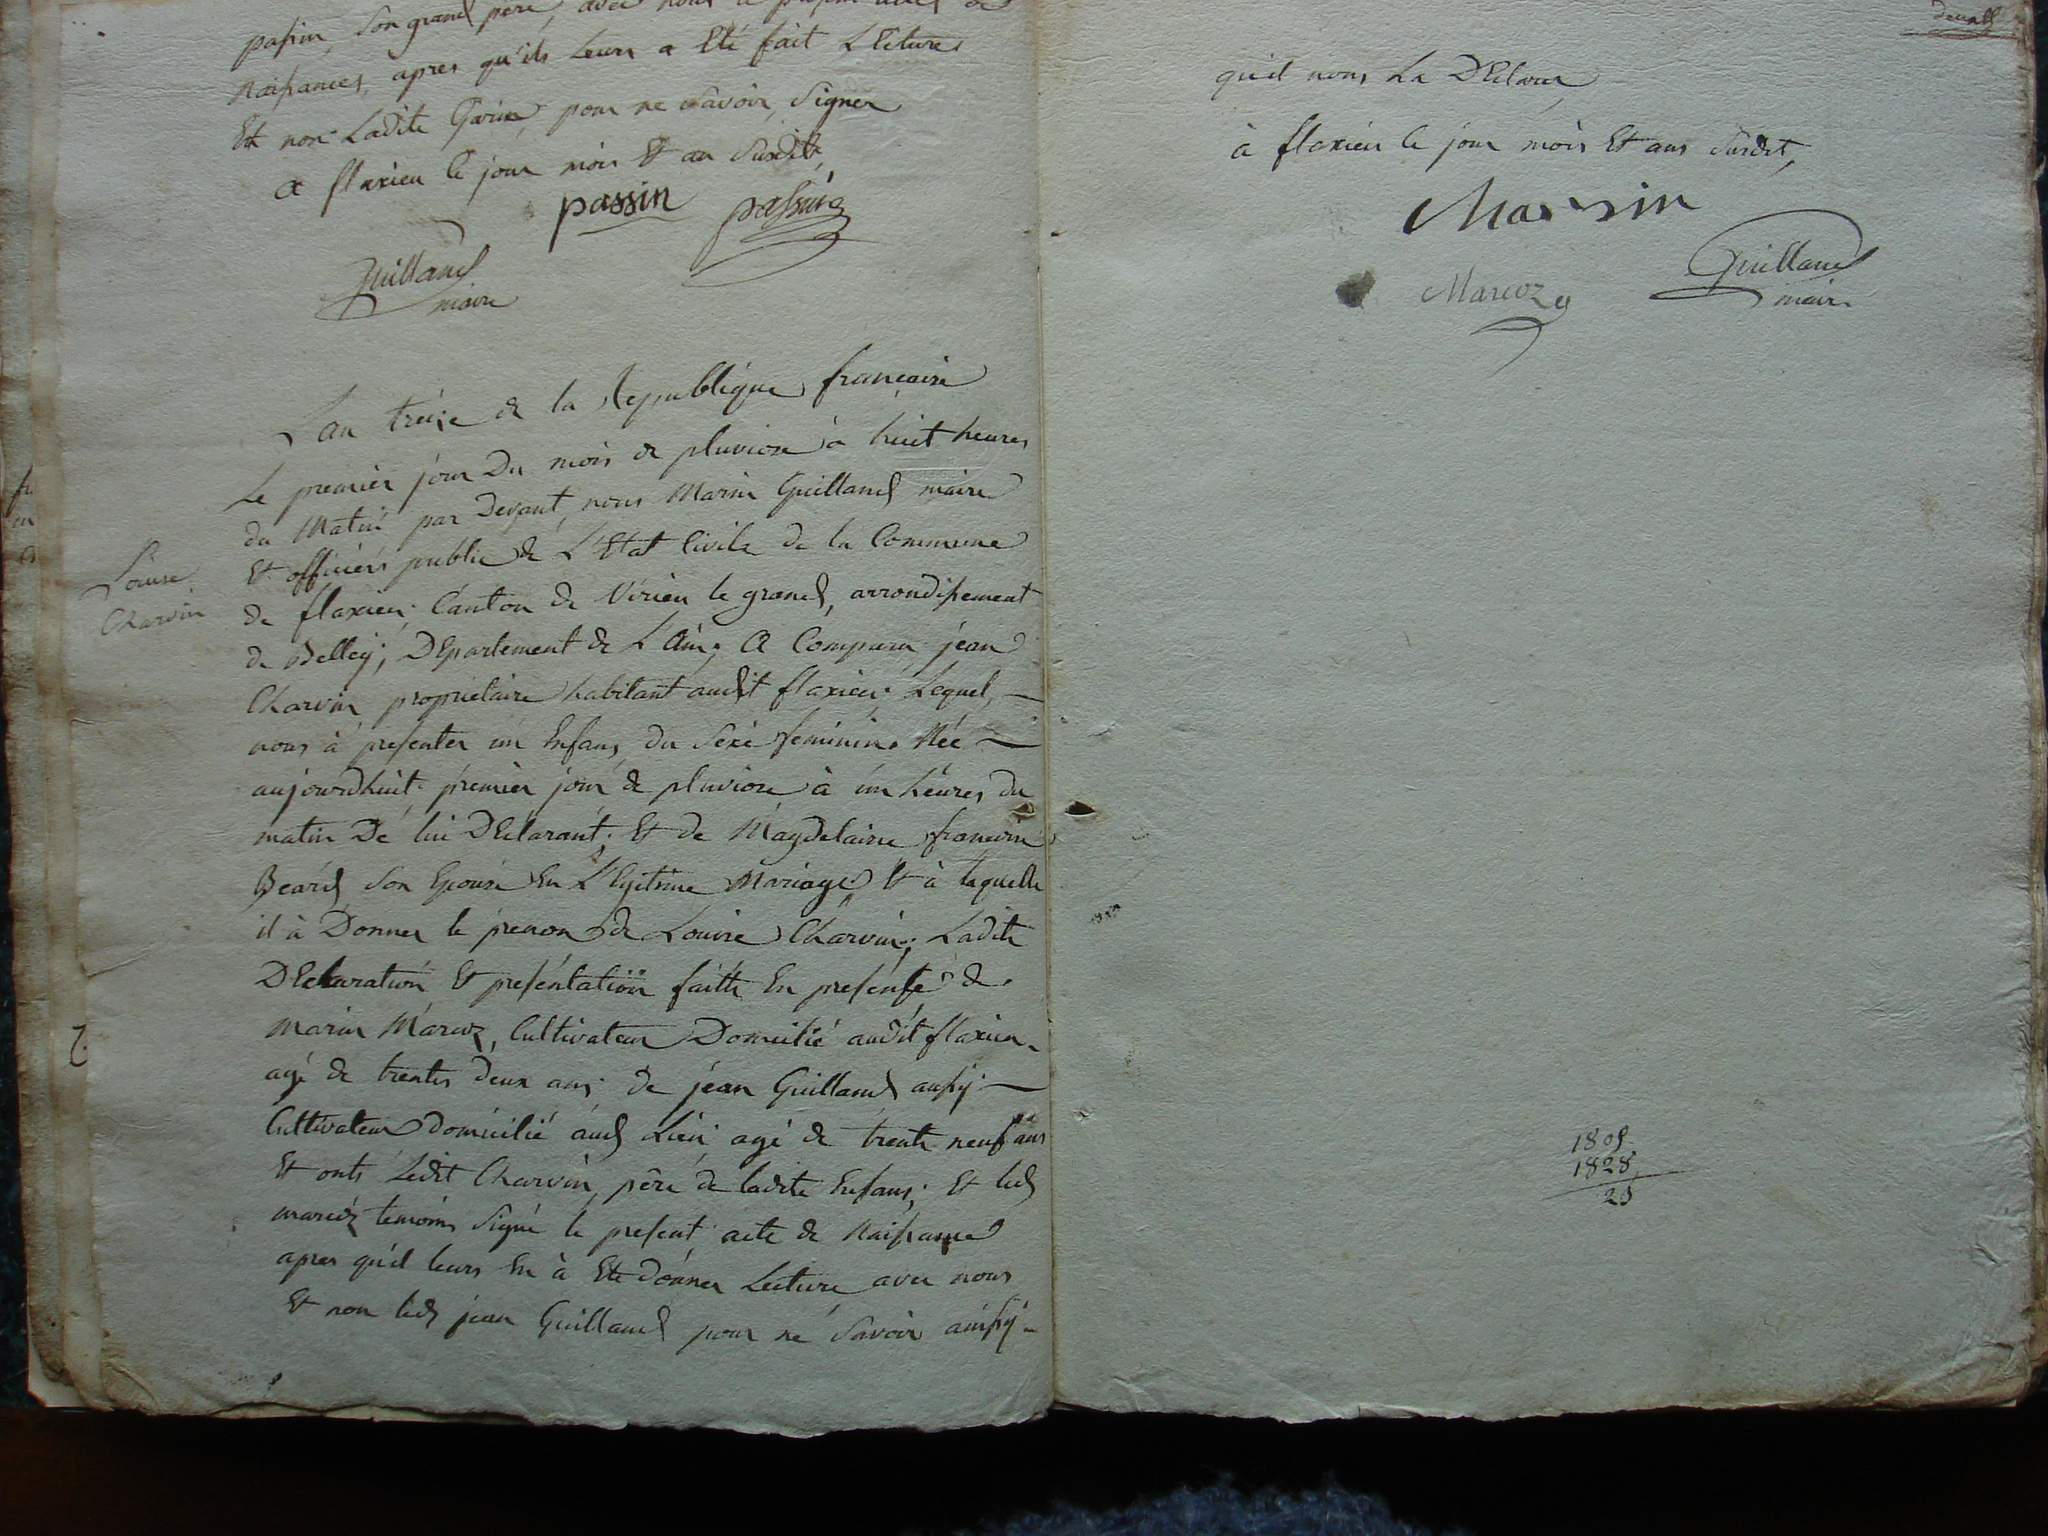 passin, Son grand père, avec nous le présent acte de
Naissances, apres qu'ils Leurs a Eté fait LEcture
Et non Ladite Gavin pour ne Savoir Signer
a flaxieu le jour mois Et an Susdits,
passin passin
Guilland
maire
Lan treize de la Republique francaise
Le premier jour Du mois de pluviose à huit heures
du Matin par Devant, nous Marin Guilland maire
Et officiers public de L'Etat Civile de la Commune
de flaxieu, Canton de Virieu le grand, arrondissement
de Belley; DEpartement de L'ain; A Comparu jean
Charvin propriétaire habitant audit flaxieu; Lequel,
nous à presenter un Enfans du Sexe feminin. Née
aujourdhuit premier jour de pluviose à un heures du
matin De lui DEclarant; Et de Magdelaine francoise
Beard Son Epouse En LEgitime Mariage Et à laquelle
il à Donner le prenon de Louise Charvin; Ladite
DEclaration Et presentation faitte En presense de
Marin Marcoz, Cultivateur Domicilié audit flaxieu.
agé de trentes deux ans; de jean Guilland aussy
Cultivateur domicilié aud Lieu agé de trente neuf ans
Et onts Ledit Charvin, père de ladite Enfans; Et led
marcoz temoins Signé le present acte de Naissance
apres qu'il leurs En à Ete dónner Lecture avec nous
Et non led jean Guilland pour ne Savoir ainsy
Louise
Charvin
qu'il nous La DEclaré
à flaxieu le jour mois Et ans Susdit,
Guilland
Marcoz
maire
1805
1828
23